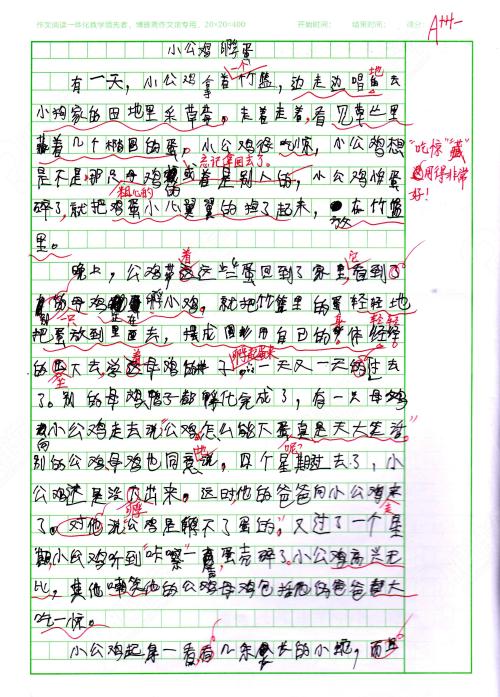 作文阅读一体化教学领先者，博赛客作文馆专用，20×20=400 开始时间： 结束时间： 得分：
A++-
小公鸡孵蛋
一个
有一天，小公鸡拿着竹篮，边走边唱地去
小狗家的田地里采草莓，走着走着，看见草丛里
藏着几个椭圆的蛋，小公鸡很吃惊，小公鸡想
忘记拿回去了。
是不是那只母鸡或者是别人的，小公鸡怕蛋
粗心的
碎了，就把鸡蛋小心翼翼的捡了起来，放在竹篮
里。
"吃惊""藏"
用得非常
好！
晚上，公鸡带着这些蛋回到了家里，看到了
母鸡在孵小鸡，就把竹篮里的蛋轻轻地
把蛋放到里面去，用自己的身体轻轻
的坐下去，学着母鸡的样子，一天又一天的过去
了。别的母鸡鸭子都孵化完成了，有一只母鸡
向小公鸡走去说"公鸡怎么能下蛋真是天大笑话"
别的公鸡母鸡也同意地说，四个星期过去了，小
公鸡还是没孵出来。这时他的爸爸向小公鸡走来
了。对他说公鸡是孵不了蛋的"，又过了一个星
期，小公鸡听到"咔嚓"一声蛋壳碎了，小公鸡高兴无
比，其他嘲笑他的公鸡母鸡包括他的爸爸都大
吃一惊。
小公鸡起身一看有几条长长的小蛇，而且